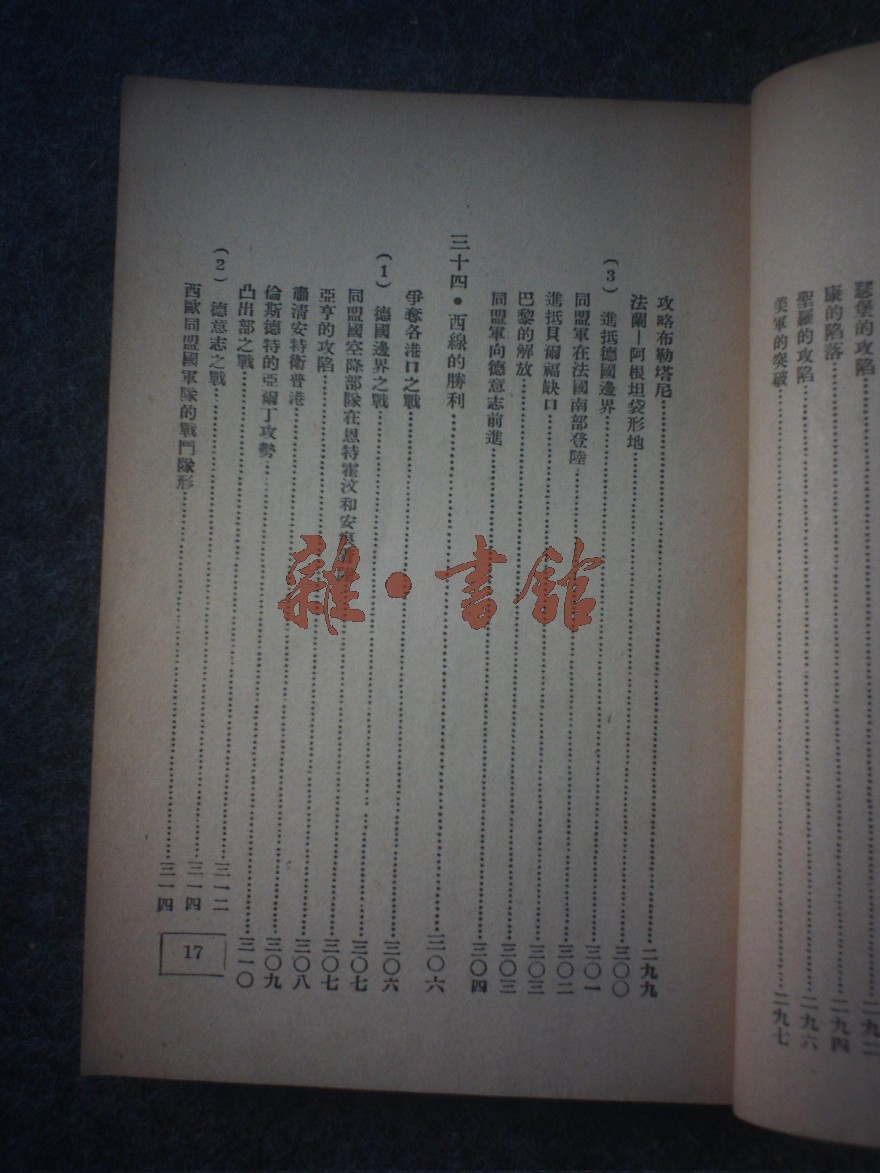 瑟堡的攻陷……二九二
康的陷落……二九四
聖羅的攻陷……二九六
美軍的突破……二九七
攻略布勒塔尼……二九九
法蘭—阿根坦袋形地……三〇〇
（3）進抵德國邊界……三〇一
同盟軍在法國南部登陸……三〇二
進抵貝爾福缺口……三〇三
巴黎的解放……三〇三
同盟軍向德意志前進……三〇四
三十四・西線的勝利……三〇六
爭奪各港口之戰……三〇六
（1）德國邊界之戰……三〇七
同盟國空降部隊在恩特霍汶和安……三〇七
亞亨的攻陷……三〇八
肅清安特衛普港……三〇九
倫斯德特的亞爾丁攻勢……三一〇
凸出部之戰……三一二
（2）德意志之戰……三一四
西歐同盟國軍隊的戰鬥隊形……三一四
17
雜・書館